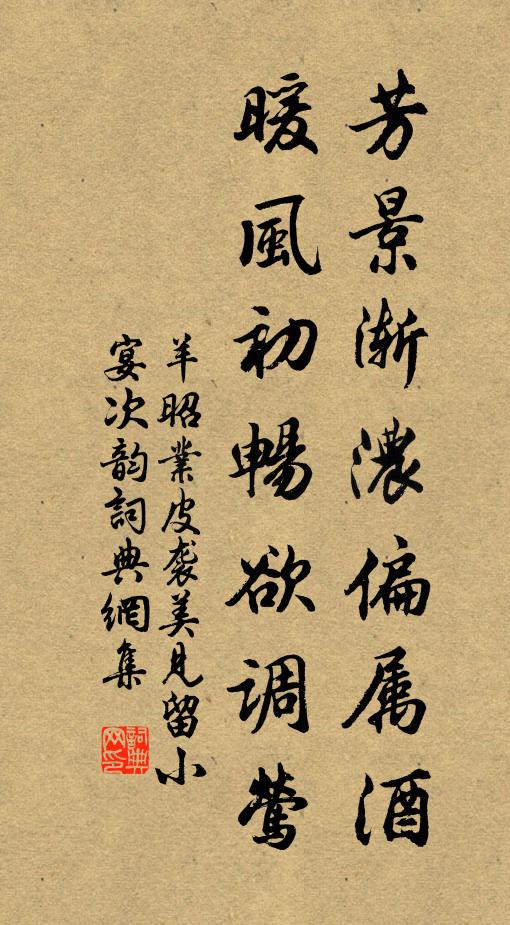 芳景漸濃偏属酒
暖風初暢欲調鶯
羊昭業皮袭美見留小
宴次韵詞典網集
詞典
网印